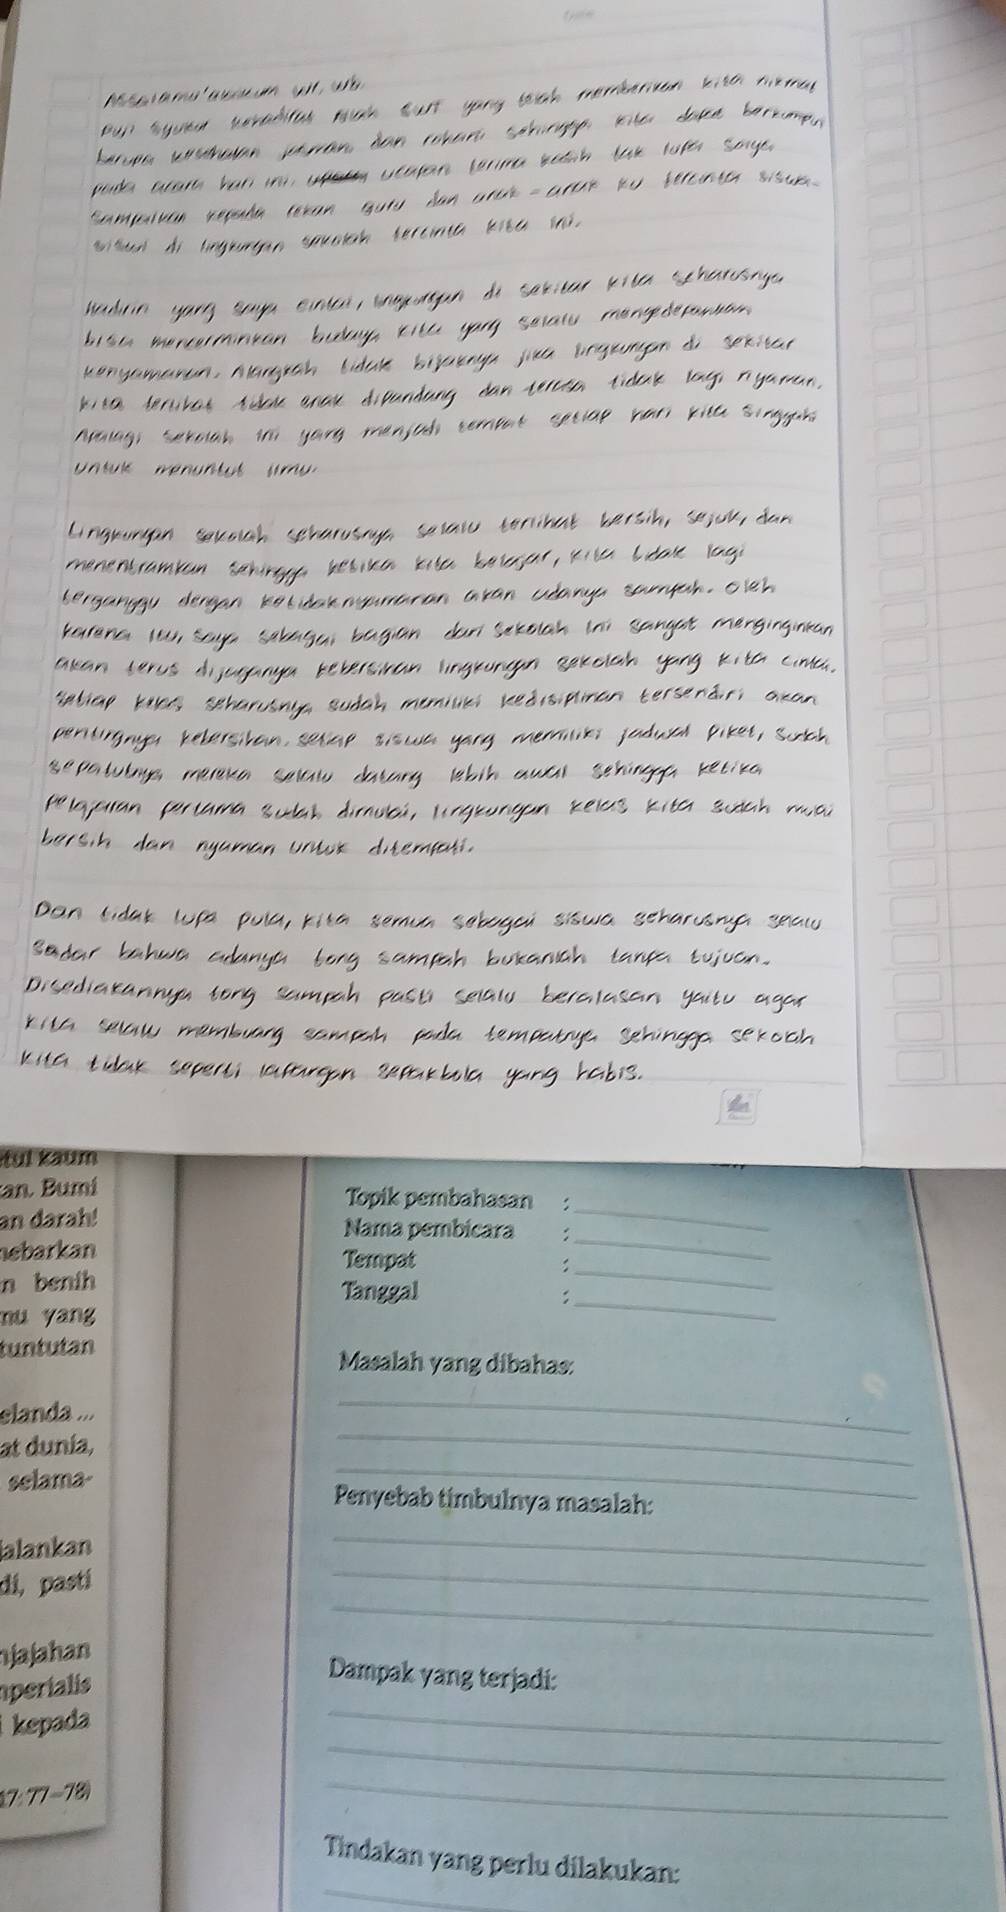 Assalamu'alaikum wr, wb.
Puji syukur kehadirat Allah swt yang telah memberikan kita nikmat
berupa kesehatan jasmani dan rohani sehingga kita dapat berkumpul
pada acara hari ini. ucapan terima kasih tak lupa saya
sampaikan kepada rekan guru dan anak-anak ku tercinta siswa-
siswi di lingkungan sekolah tercinta kita ini.
Hadirin yang saya cintai, lingkungan di sekitar kita seharusnya
bisa mencerminkan budaya kita yang selalu mengedepankan
kenyamanan. Alangkah tidak bijaknya jika lingkungan di sekitar
kita terlihat tidak enak dipandang dan terasa tidak lagi nyaman.
Apalagi sekolah ini yang menjadi tempat setiap hari kita singgahi
untuk menuntut ilmu.
Lingkungan sekolah seharusnya selalu terlihat bersih, sejuk, dan
menentramkan sehingga ketika kita belajar, kita tidak lagi
terganggu dengan ketidaknyamanan akan adanya sampah. Oleh
karena itu, saya sebagai bagian dari sekolah ini sangat menginginkan
akan terus dijaganya kebersihan lingkungan sekolah yang kita cintai.
Setiap kelas seharusnya sudah memiliki kedisiplinan tersendiri akan
pentingnya kebersihan. Setiap siswa yang memiliki jadwal piket, sudah
sepatutnya mereka selalu datang lebih awal sehingga ketika
pelajaran pertama sudah dimulai, lingkungan kelas kita sudah mulai
bersih dan nyaman untuk ditempati.
Dan tidak lupa pula, kita semua sebagai siswa seharusnya selalu
sadar bahwa adanya tong sampah bukanlah tanpa tujuan.
Disediakannya tong sampah pasti selalu beralasan yaitu agar
kita selalu membuang sampah pada tempatnya sehingga sekolah
kita tidak seperti lapangan sepakbola yang habis.
tul kaum
an. Bumi
an darah!
nebarkan
n benih
mu yang
tuntutan
elanda ...
at dunia,
selama-
jalankan
di, pasti
njajahan
nperialis
i kepada
17: 77–78)
Topik pembahasan :
Nama pembicara :
Tempat :
Tanggal :
Masalah yang dibahas:
Penyebab timbulnya masalah:
Dampak yang terjadi:
Tindakan yang perlu dilakukan: